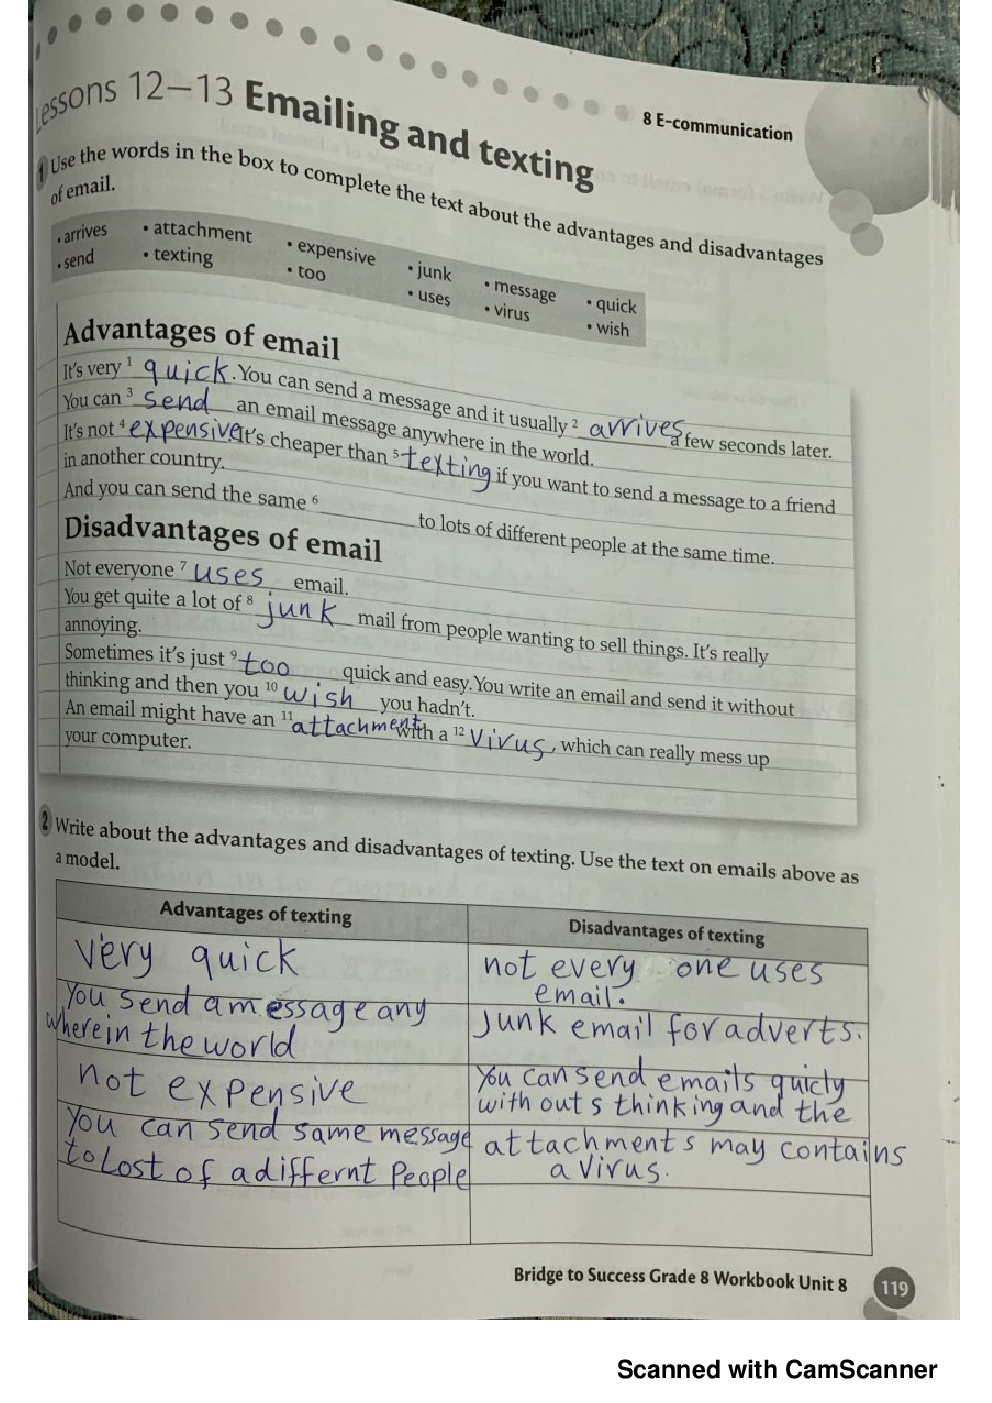 Lessons 12–13 Emailing and texting
8 E-communication
1 Use the words in the box to complete the text about the advantages and disadvantages
of email.
• arrives • attachment • expensive • junk • message • quick
• send • texting • too • uses • virus • wish
Advantages of email
It's very 1 quick. You can send a message and it usually 2 arrives a few seconds later.
You can 3 send an email message anywhere in the world.
It's not 4 expensive It's cheaper than 5 texting if you want to send a message to a friend
in another country.
And you can send the same 6 ________ to lots of different people at the same time.
Disadvantages of email
Not everyone 7 uses email.
You get quite a lot of 8 junk mail from people wanting to sell things. It's really
annoying.
Sometimes it's just 9 too quick and easy. You write an email and send it without
thinking and then you 10 wish you hadn't.
An email might have an 11 attachment with a 12 virus, which can really mess up
your computer.
2 Write about the advantages and disadvantages of texting. Use the text on emails above as
a model.
Advantages of texting
very quick
You send a message any
where in the world
not expensive
You can send same message
to Lost of a differnt People
Disadvantages of texting
not every one uses
email.
Junk email for adverts.
You can send emails quicty
with out s thinking and the
attachments may contains
a virus.
Bridge to Success Grade 8 Workbook Unit 8 119
Scanned with CamScanner